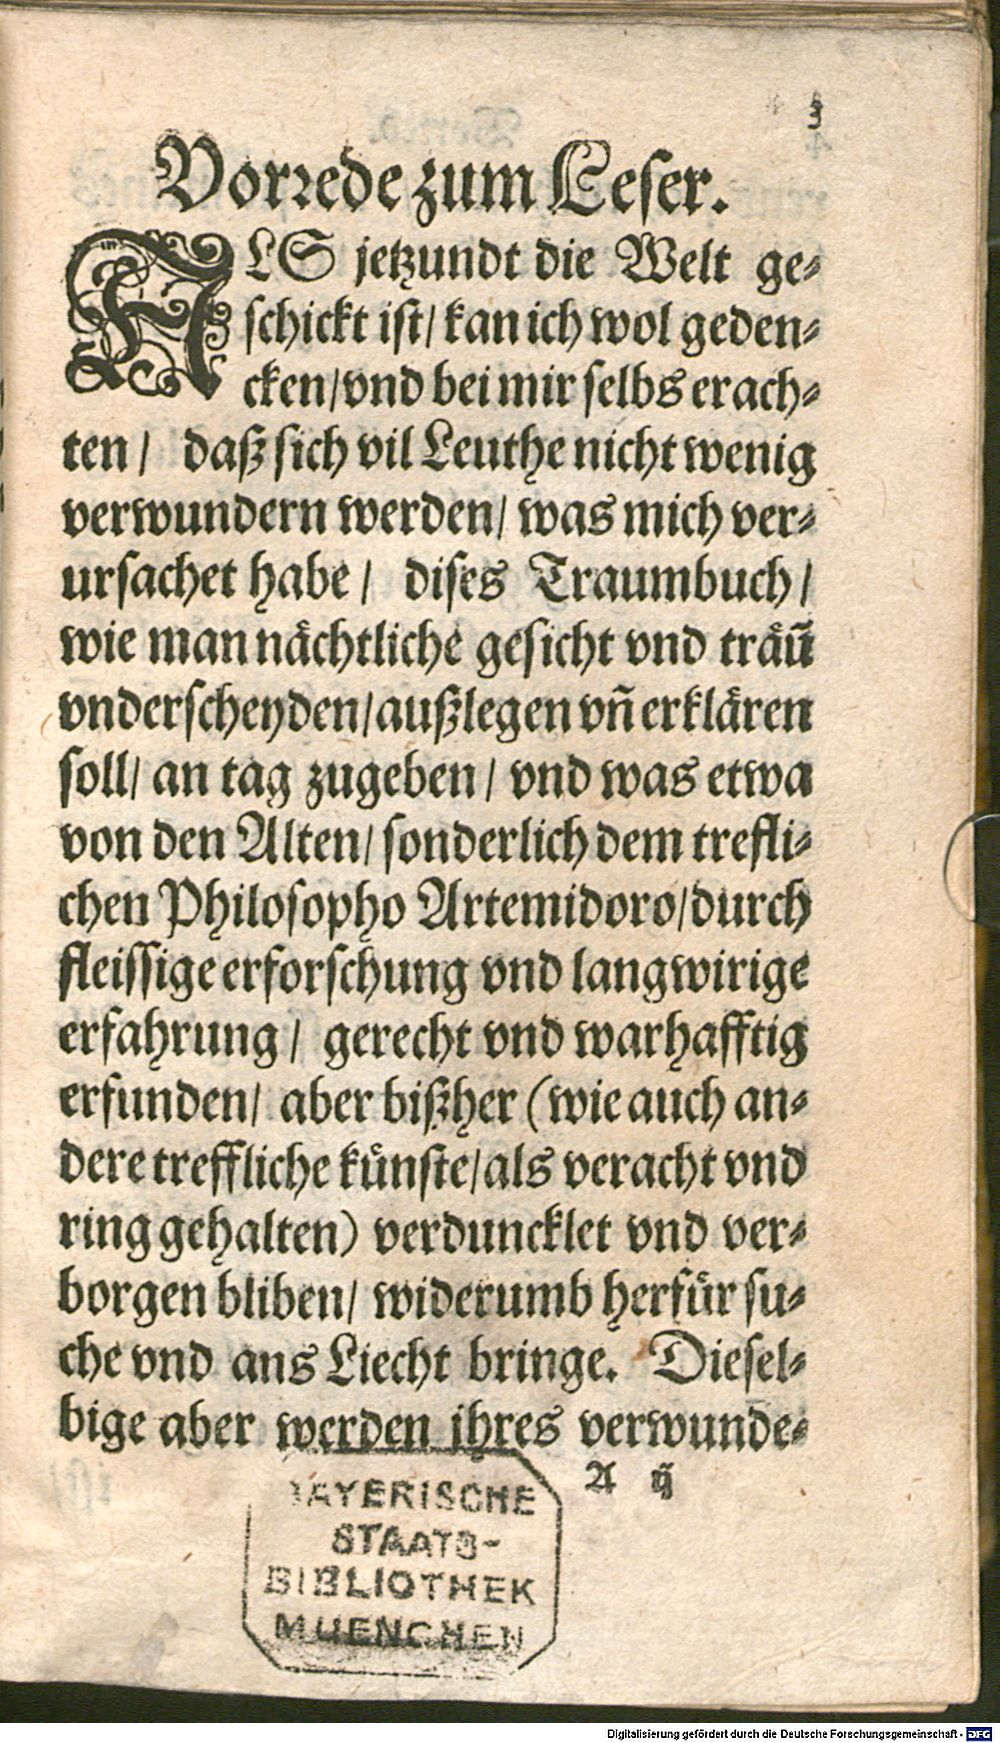 3
Vorrede zum Leser.
ALS jetzundt die Welt ge⸗
schickt ist/ kan ich wol geden⸗
cken/ vnd bei mir selbs erach⸗
ten/ daß sich vil Leuthe nicht wenig
verwundern werden/ was mich ver⸗
ursachet habe/ dises Traumbuch/
wie man nåchtliche gesicht vnd tråū
vnderscheyden/ außlegen vn̄ erklåren
soll/ an tag zugeben/ vnd was etwa
von den Alten/ sonderlich dem trefli⸗
chen Philosopho Artemidoro/ durch
fleissige erforschung vnd langwirige
erfahrung/ gerecht vnd warhafftig
erfunden/ aber bißher (wie auch an⸗
dere treffliche kůnste/ als veracht vnd
ring gehalten) verduncklet vnd ver⸗
borgen bliben/ widerumb herfůr su⸗
che vnd ans Liecht bringe. Diesel⸗
bige aber werden jhres verwunde⸗
A ij
BAYERISCHE
STAATS-
BIBLIOTHEK
MUENCHEN
Digitalisierung gefördert durch die Deutsche Forschungsgemeinschaft - DFG